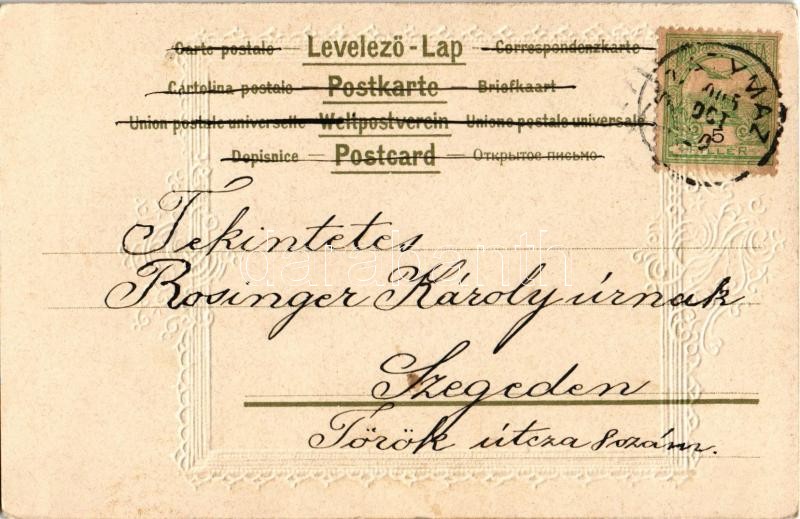 Carte postale — Levelező-Lap — Correspondenzkarte
Cartolina postale — Postkarte — Briefkaart
Union postale universelle — Weltpostverein — Unione postale universale
Dopisnice — Postcard — Открытое письмо
5
OCT
Tekintetes
Rosinger Károly úrnak
Szegeden
Török útcza 8 szám.